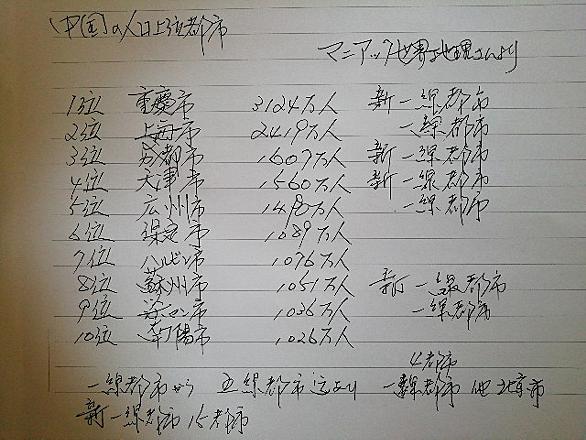 中国の人口上位都市
マニアック世界地理さんより
1位 重慶市 3124万人 新一線都市
2位 上海市 2419万人 一線都市
3位 成都市 1607万人 新一線都市
4位 天津市 1560万人 新一線都市
5位 広州市 1490万人 一線都市
6位 保定市 1089万人
7位 ハルビン市 1076万人
8位 蘇州市 1051万人 新一線都市
9位 市 1036万人 一線都市
10位 南陽市 1026万人
4都市
一線都市から 五線都市迄あり 一線都市 他 北京市
新一線都市 15都市